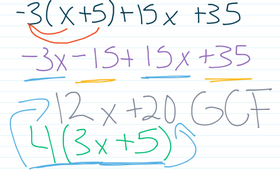 -3(x+5)+15x +35
-3x-15+15x+35
12x+20 GCF
4(3x+5)